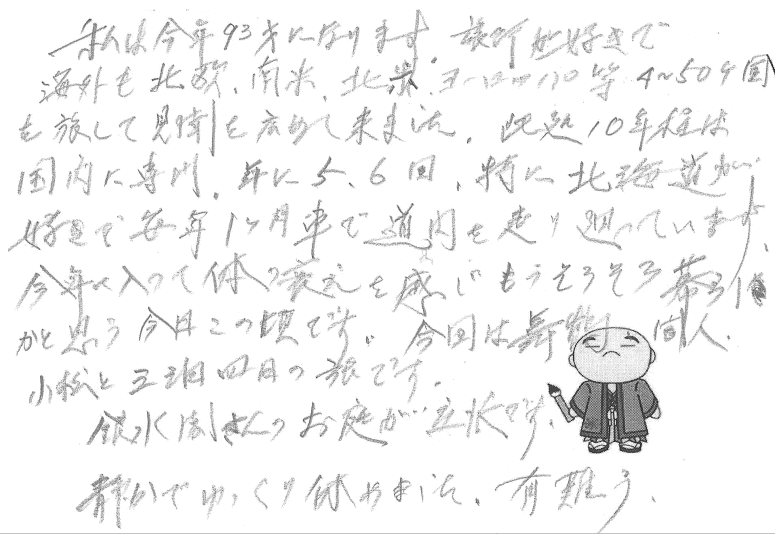 私は今年93才になります。旅行が好きで
海外も北欧、南米、北米、ヨーロッパ等4~50ヶ国
を旅して見聞を広めて来ました。此処10年程は
国内に専門。年に5、6回、特に北海道が
好きで毎年1ヶ月車で道内を走り廻っています。
今年に入って体の衰えを感じもうそろそろ幕引き
かと思う今日この頃です。今回は
小松と 四日の旅です。
さんのお庭が立派です。
静かでゆっくり休めました。有難う。